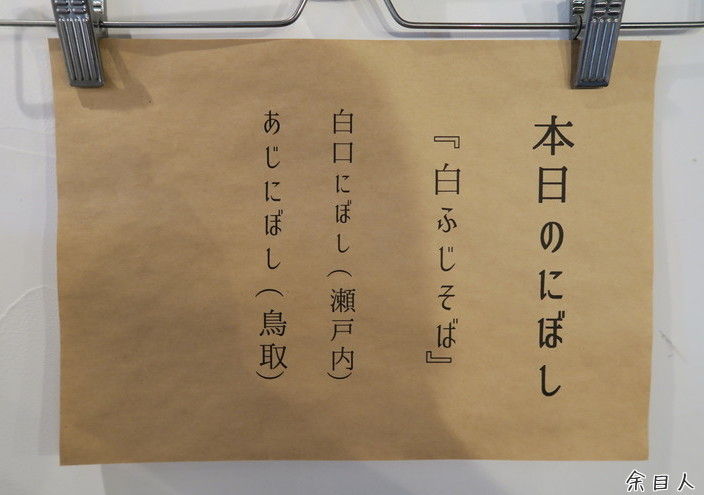 本日のにぼし
『白ふじそば』
白口にぼし（瀬戸内）
あじにぼし（鳥取）
余目人